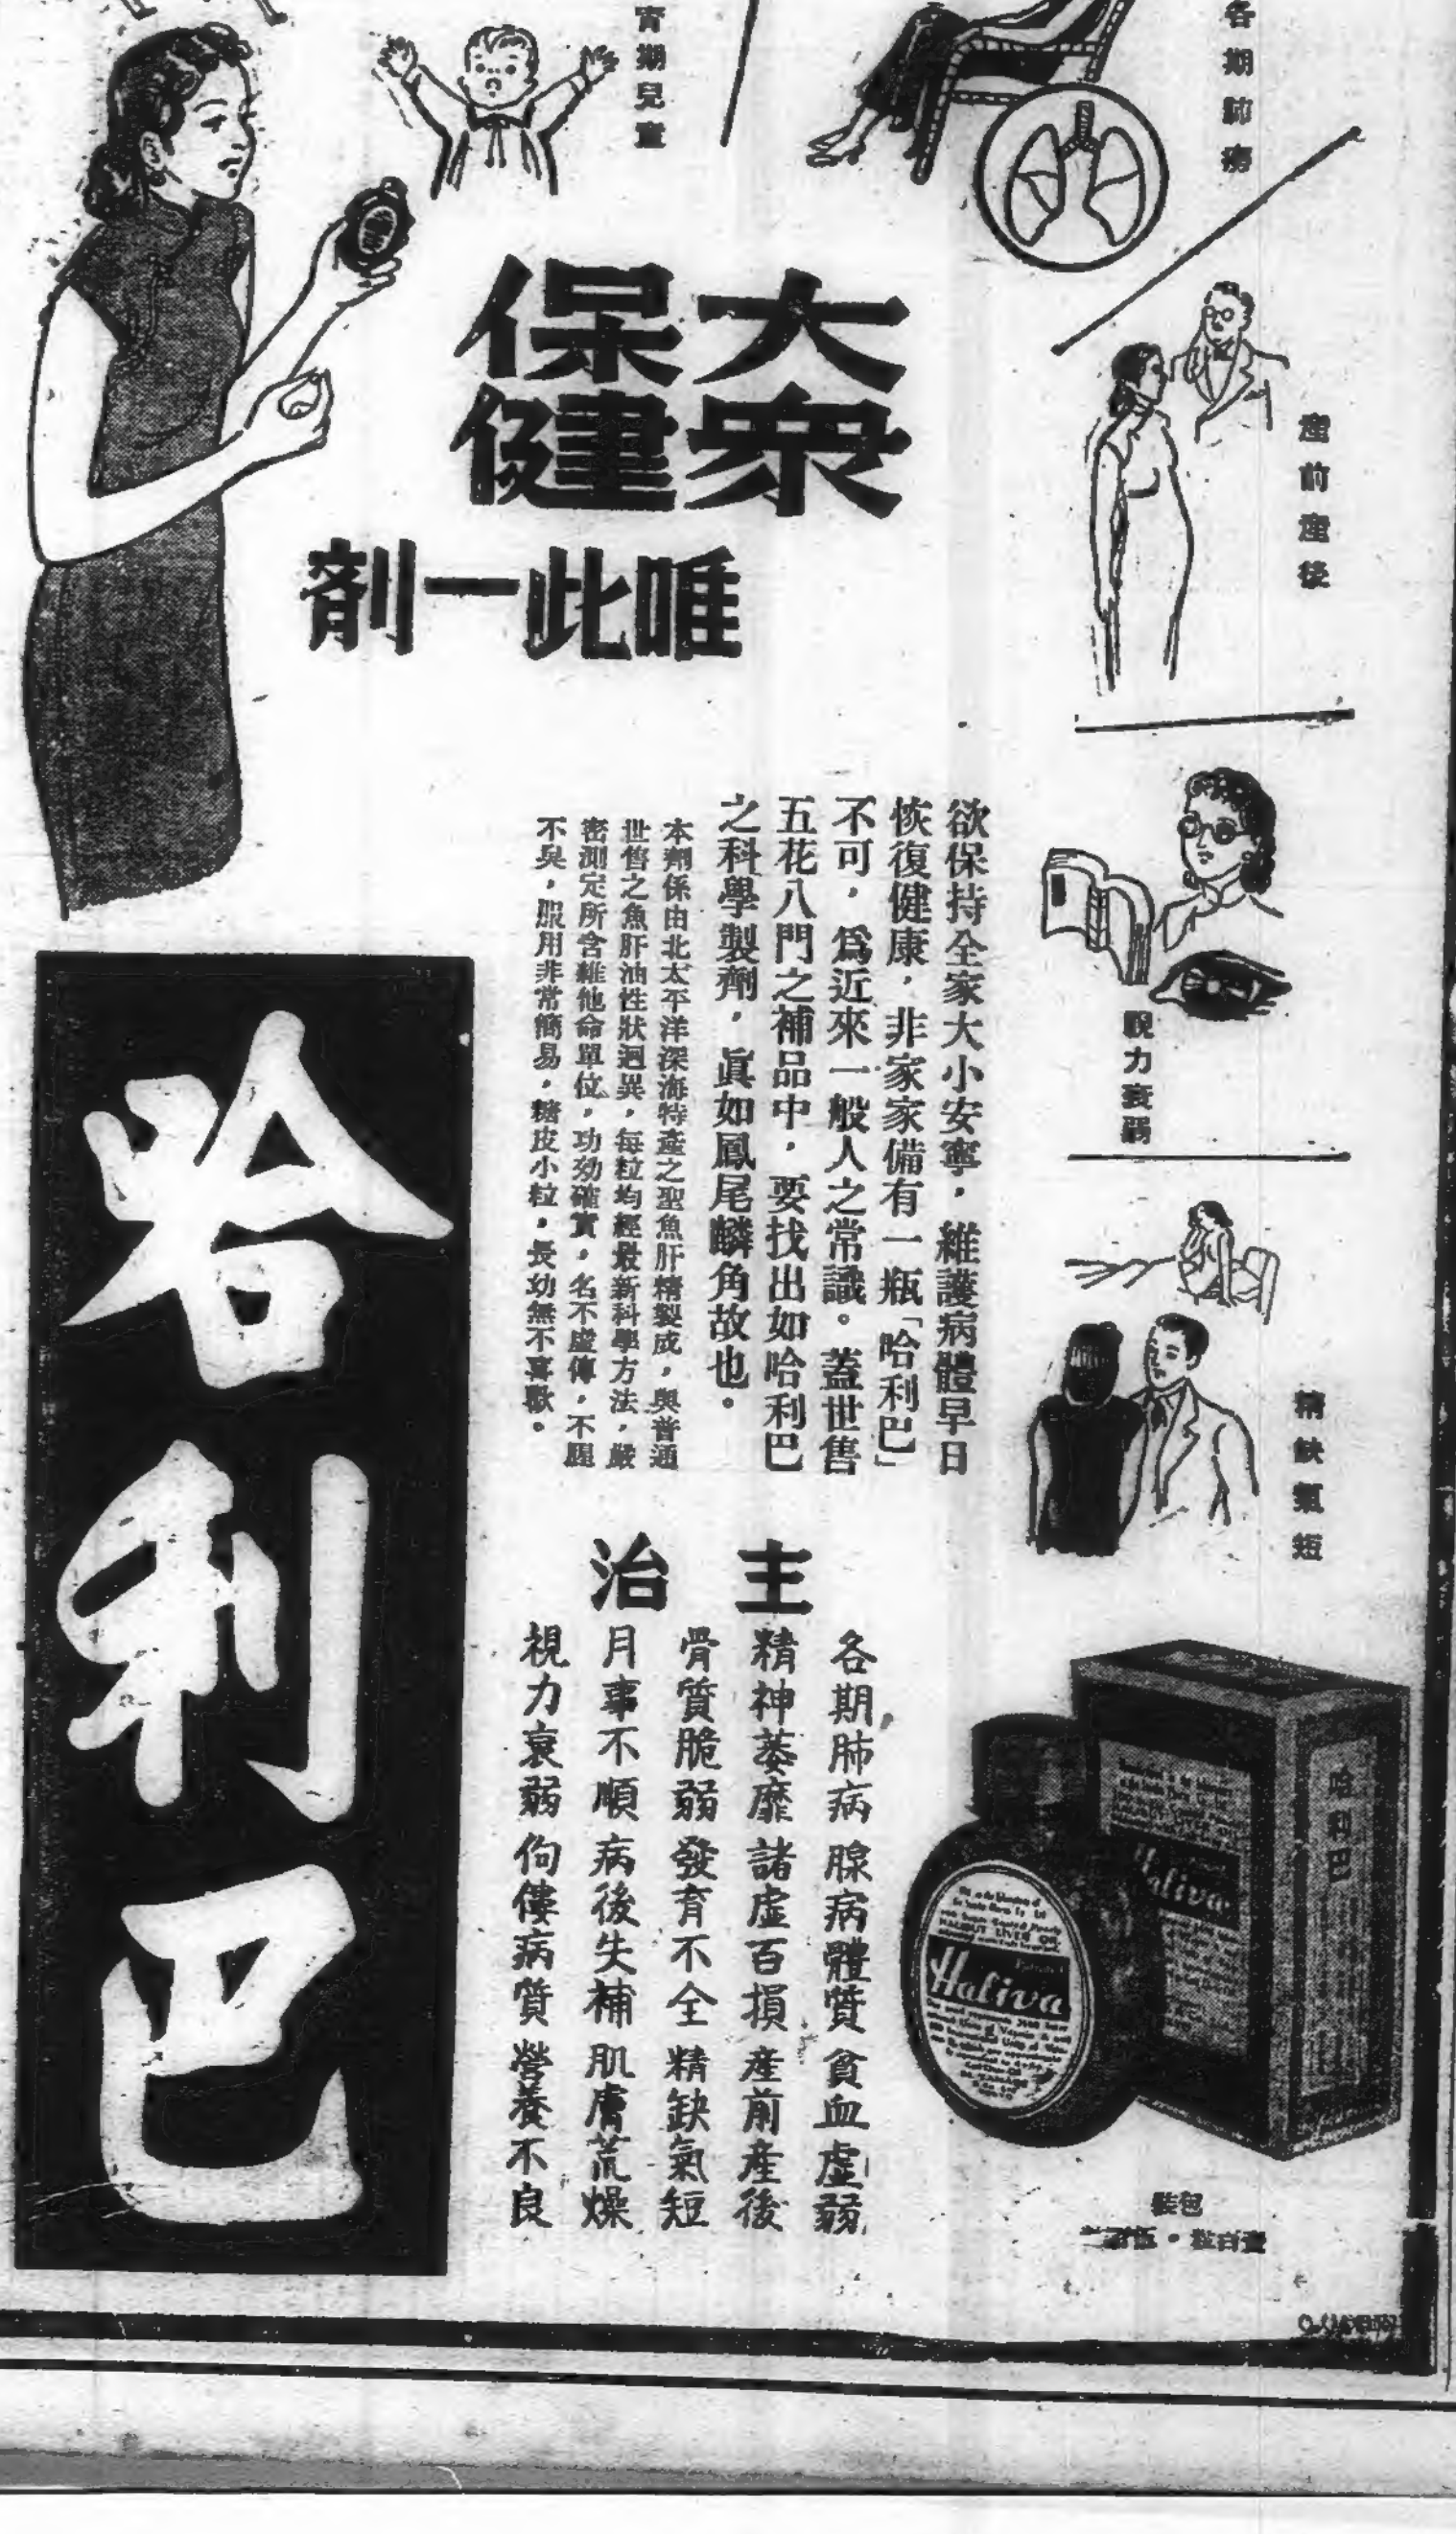 育期兒童
各期肺癆
大衆
保健
唯此一剤
產前產後
視力衰弱
精缺氣短
欲保持全家大小安寧，維護病體早日
恢復健康，非家家備有一瓶「哈利巴」
不可，爲近來一般人之常識。蓋世售
五花八門之補品中，要找出如哈利巴
之科學製劑，眞如鳳尾麟角故也。
本劑係由北太平洋深海特產之聖魚肝精製成，與普通
世售之魚肝油性狀迥異，每粒均經最新科學方法，嚴
密測定所含維他命單位，功効確實，名不虛傳，不腥
不臭，服用非常簡易，糖皮小粒，長幼無不喜歡。
主治
各期肺病 腺病體質 貧血虛弱
精神萎靡 諸虛百損 產前產後
骨質脆弱 發育不全 精缺氣短
月事不順 病後失補 肌膚荒燥
視力衰弱 佝僂病質 營養不良
哈利巴
哈利巴
Haliva
HALIBUT LIVER OIL
Haliva
包裝